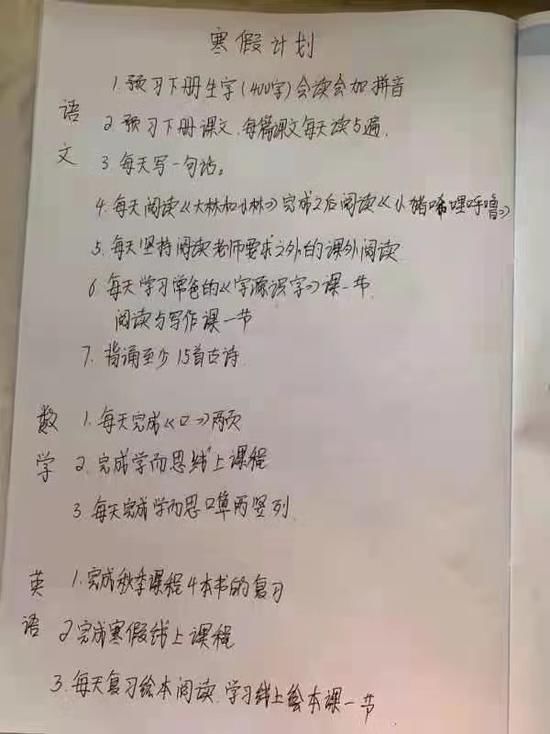 寒假计划
语文
1. 预习下册生字(400字)会读会加拼音
2. 预习下册课文,每篇课文每天读5遍.
3. 每天写一句话。
4. 每天阅读《大林和小林》完成之后阅读《小猪唏哩呼噜》
5. 每天坚持阅读老师要求之外的课外阅读
6. 每天学习常色的《字源识字》课一节.
阅读与写作课一节
7. 背诵至少15首古诗.
数学
1. 每天完成《口》两页
2. 完成学而思线上课程
3. 每天完成学而思口算两竖列.
英语
1. 完成秋季课程4本书的复习
2 完成寒假线上课程
3. 每天复习绘本阅读.学习线上绘本课一节